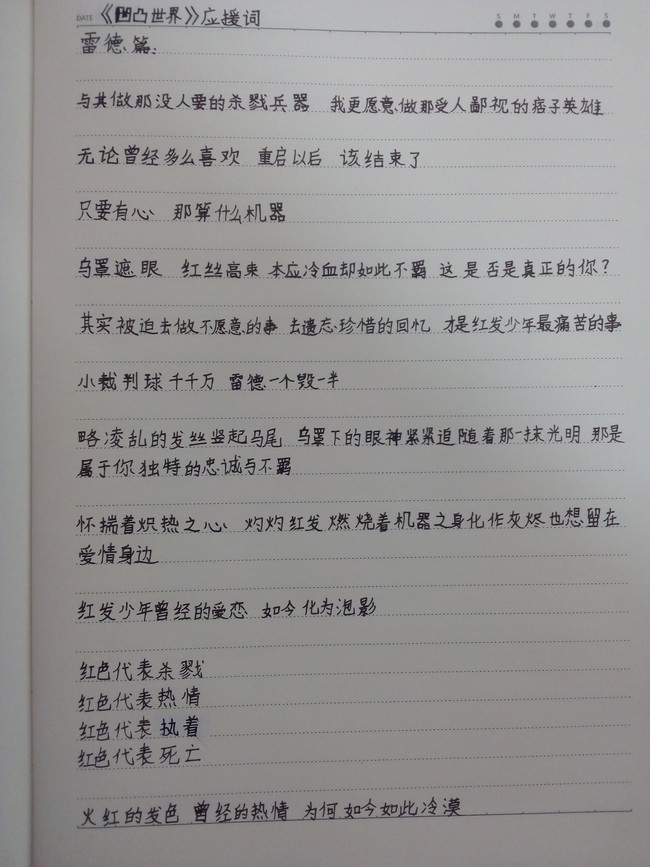 DATE 《凹凸世界》应援词 S M T W T F S
雷德篇:
与其做那没人要的杀戮兵器 我更愿意做那受人鄙视的痞子英雄
无论曾经多么喜欢 重启以后 该结束了
只要有心 那算什么机器
乌罩遮眼 红丝高束 本应冷血却如此不羁 这是否是真正的你?
其实被迫去做不愿意的事 去遗忘珍惜的回忆 才是红发少年最痛苦的事
小裁判球千千万 雷德一个毁一半
略凌乱的发丝竖起马尾 乌罩下的眼神紧紧追随着那一抹光明 那是
属于你独特的忠诚与不羁
怀揣着炽热之心 灼灼红发燃烧着机器之身化作灰烬也想留在
爱情身边
红发少年曾经的爱恋 如今化为泡影
红色代表杀戮
红色代表热情
红色代表执着
红色代表死亡
火红的发色 曾经的热情 为何如今如此冷漠